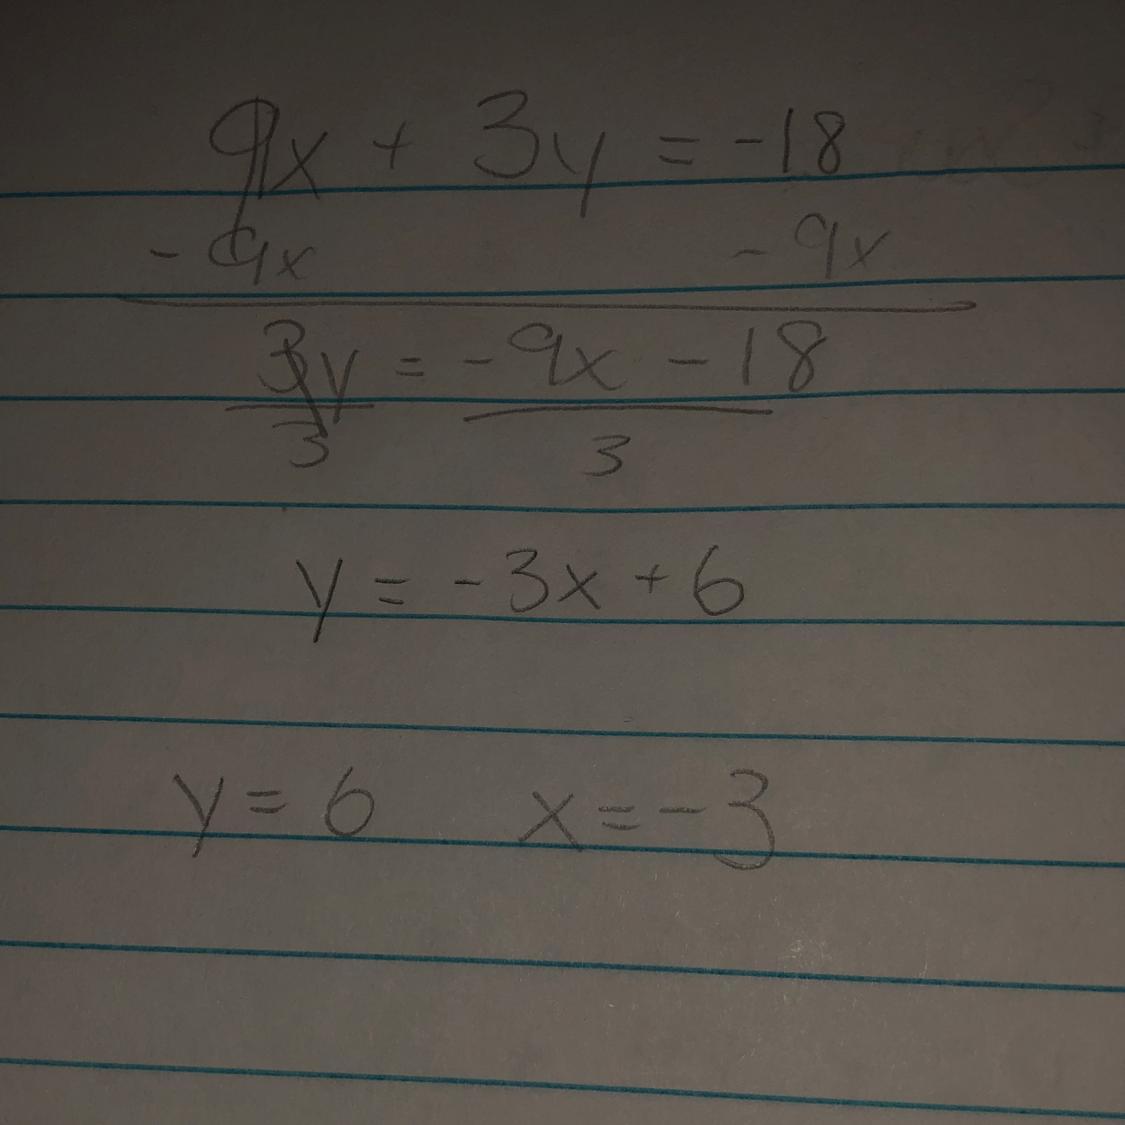 9x + 3y = -18
- 9x - 9x
3y = -9x - 18
3 3
y = -3x + 6
y = 6 x = -3